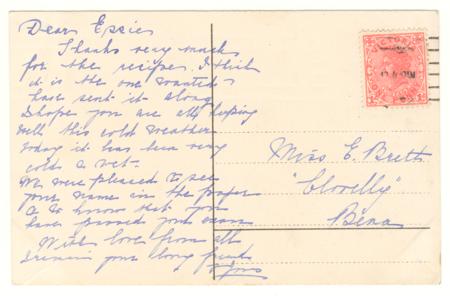 Dear Essie
Thanks very much
for the recipe. I think
it is the one wanted
have sent it along
I hope you are all keeping
well this cold weather
today it has been very
cold & wet.
We were pleased to see
your name in the paper
& to know that you
have passed your exam
With love from all
I remain your loving friend
Miss E. Brett
"Clovelly"
Bena